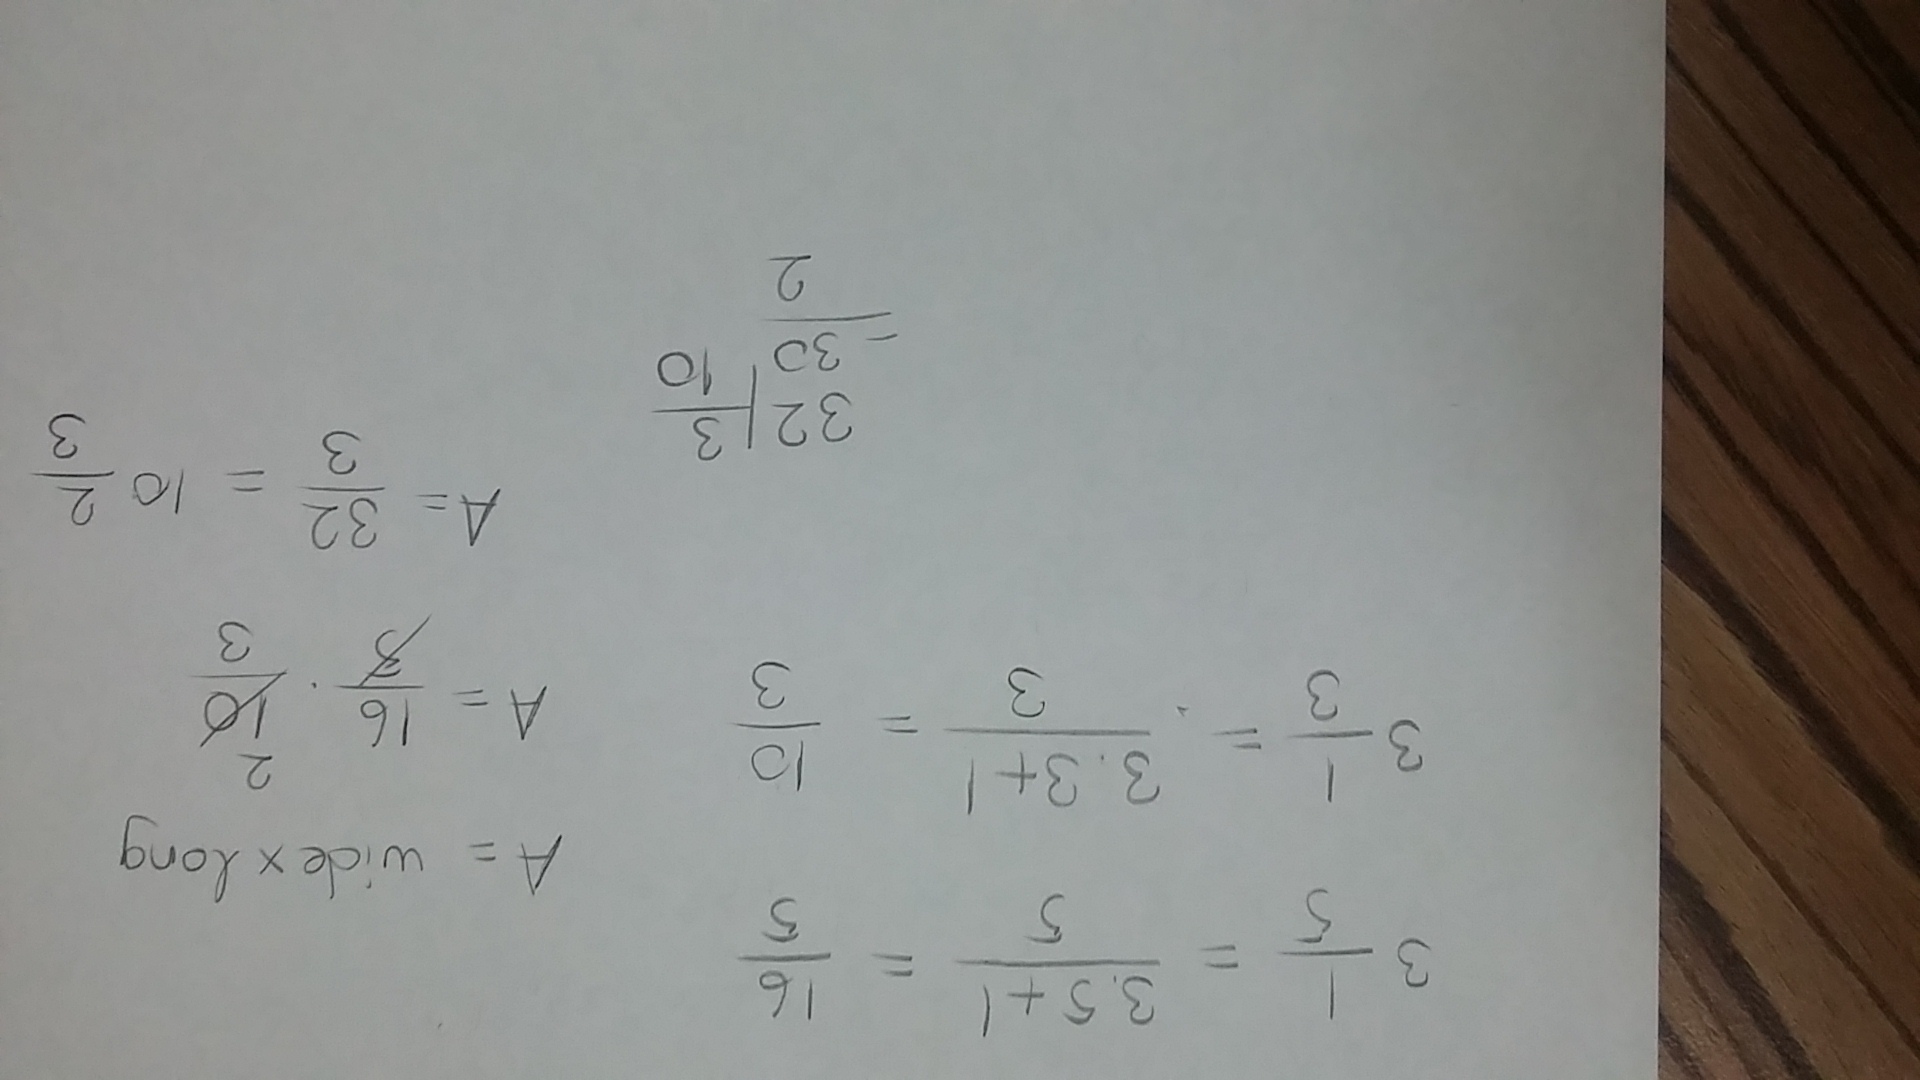 3 1/5 = (3.5+1)/5 = 16/5
A = wide x long
3 1/3 = (3.3+1)/3 = 10/3
A = 16/5 . 10/3 2
A = 32/3 = 10 2/3
32 | 3
- 30 10
2